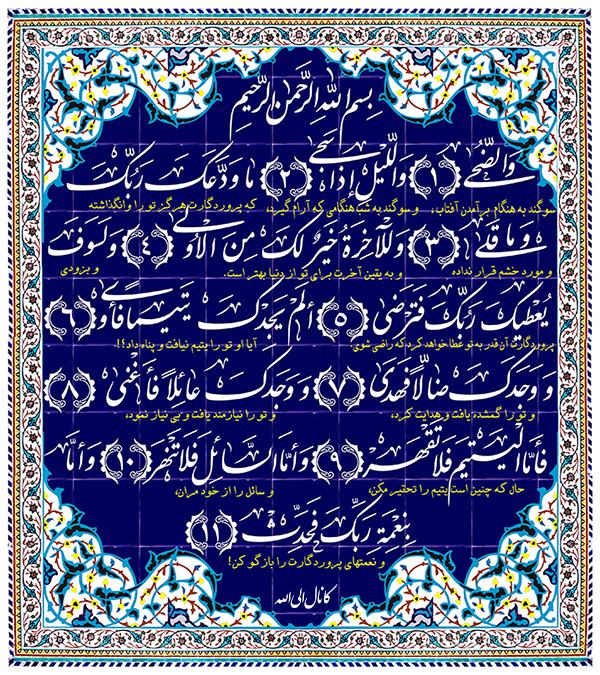 بِسْمِ اللهِ الرَّحْمنِ الرَّحِیمِ
وَالضُّحَى ﴿۱﴾ وَاللَّيْلِ إِذَا سَجَى ﴿۲﴾ مَا وَدَّعَكَ رَبُّكَ
سوگند به هنگام برآمدن آفتاب، و سوگند به شب هنگامی که آرام گیرد، که پروردگارت هرگز تو را وانگذاشته
وَمَا قَلَى ﴿۳﴾ وَلَلْآخِرَةُ خَيْرٌ لَكَ مِنَ الْأُولَى ﴿۴﴾ وَلَسَوْفَ
و مورد خشم قرار نداده و به یقین آخرت برای تو از دنیا بهتر است. و بزودی
يُعْطِيكَ رَبُّكَ فَتَرْضَى ﴿۵﴾ أَلَمْ يَجِدْكَ يَتِيمًا فَآوَى ﴿۶﴾
پروردگارت آن قدر به تو عطا خواهد کرد که راضی شوی. آیا او تو را یتیم نیافت و پناه داد؟!
وَوَجَدَكَ ضَالًّا فَهَدَى ﴿۷﴾ وَوَجَدَكَ عَائِلًا فَأَغْنَى ﴿۸﴾
و تو را گمشده یافت و هدایت کرد، و تو را نیازمند یافت و بی نیاز نمود،
فَأَمَّا الْيَتِيمَ فَلَا تَقْهَرْ ﴿۹﴾ وَأَمَّا السَّائِلَ فَلَا تَنْهَرْ ﴿۱۰﴾ وَأَمَّا
حال که چنین است یتیم را تحقیر مکن، و سائل را از خود مران،
بِنِعْمَةِ رَبِّكَ فَحَدِّثْ ﴿۱۱﴾
و نعمتهای پروردگارت را بازگو کن!
کانال الی الله